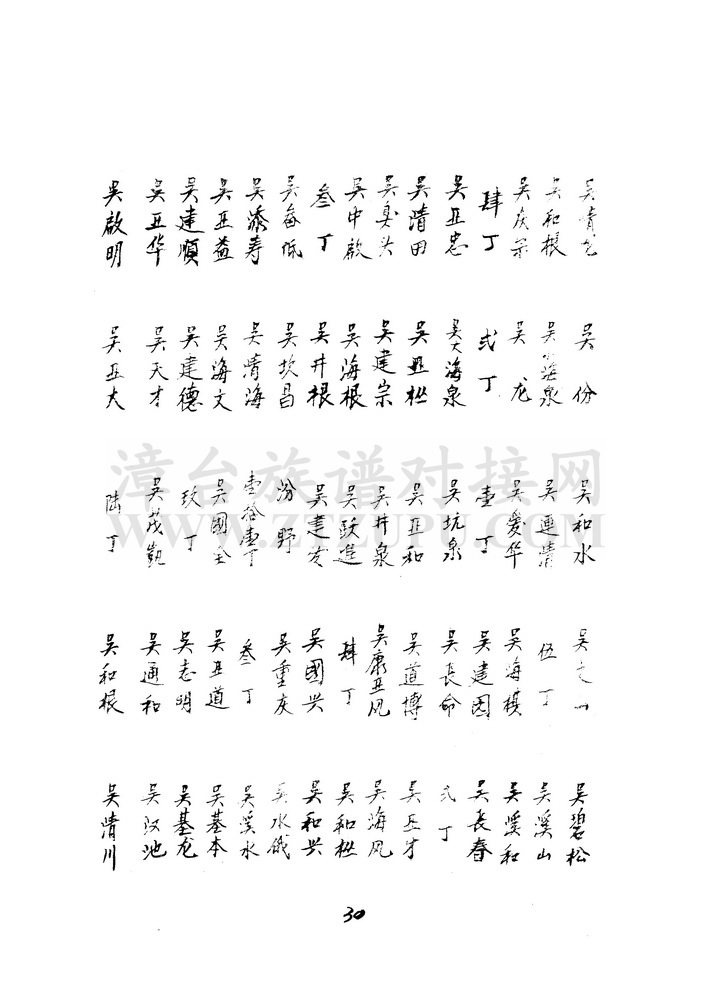 吴和根
吴庆宗
肆丁
吴亚忠
吴清田
吴臭头
吴中啟
叁丁
吴每低
吴添寿
吴亚益
吴建順
吴亚华
吴啟明
吴份
吴海泉
吴龙
弍丁
吴海泉
吴亚樾
吴建宗
吴海根
吴井根
吴坎昌
吴清海
吴海文
吴建德
吴天才
吴亚大
吴和水
吴連清
吴爱华
壹丁
吴坑泉
吴亚和
吴井泉
吴跃進
吴建发
汾野
壹拾壹丁
吴國全
玖丁
吴茂凱
陆丁
吴
伍丁
吴海棋
吴建因
吴長命
吴道博
吴康亚凤
肆丁
吴國兴
吴重庆
叁丁
吴亚道
吴志明
吴通和
吴和根
吴碧松
吴溪山
吴溪和
吴長春
弍丁
吴亚才
吴海凤
吴和樾
吴和兴
吴水俄
吴溪水
吴基本
吴基龙
吴汉池
吴清川
30
漳台族谱对接网
WWW.ZTZUPU.COM